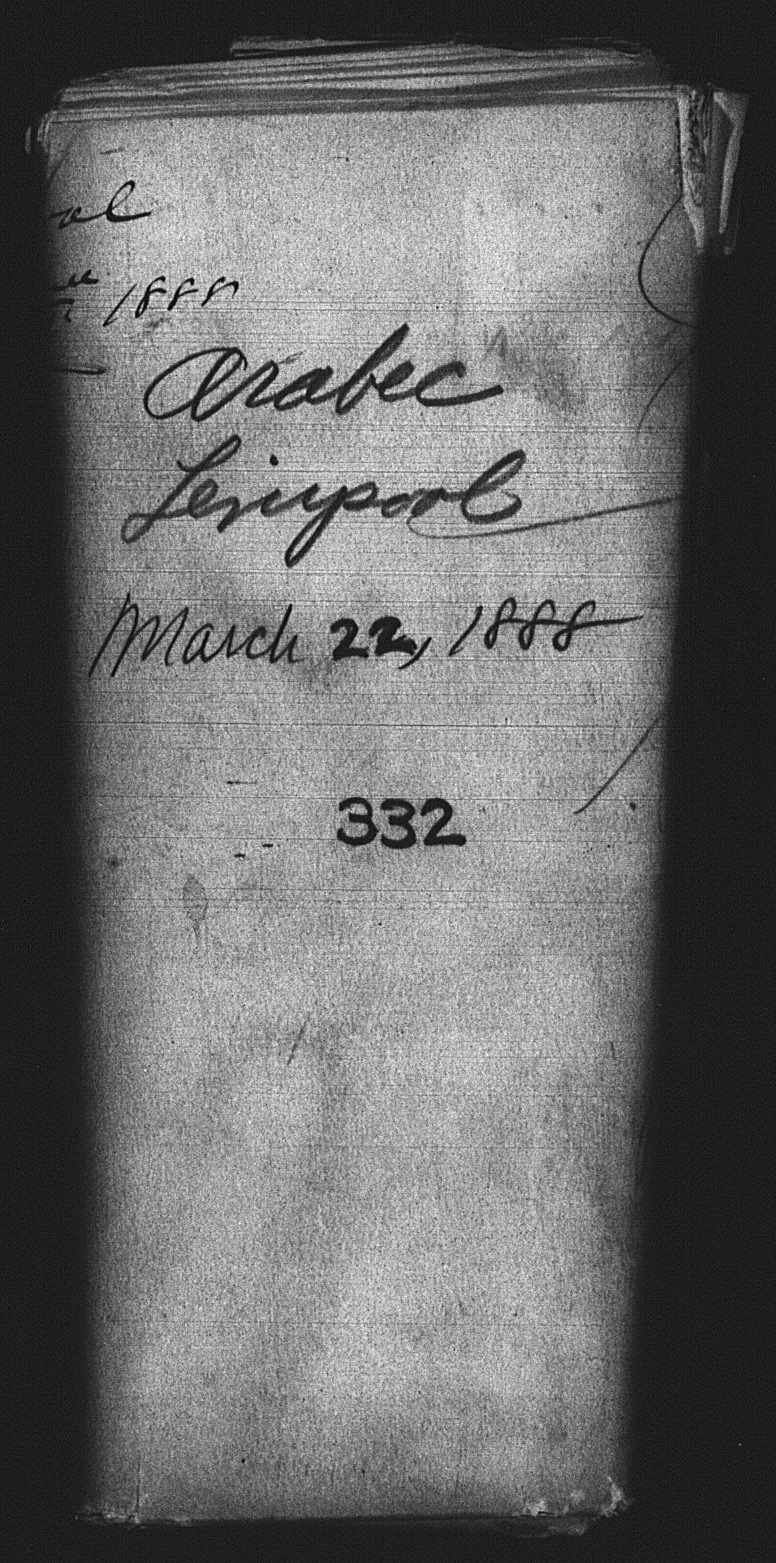 ol
1888
Arabic
Liverpool
March 22, 1888
332